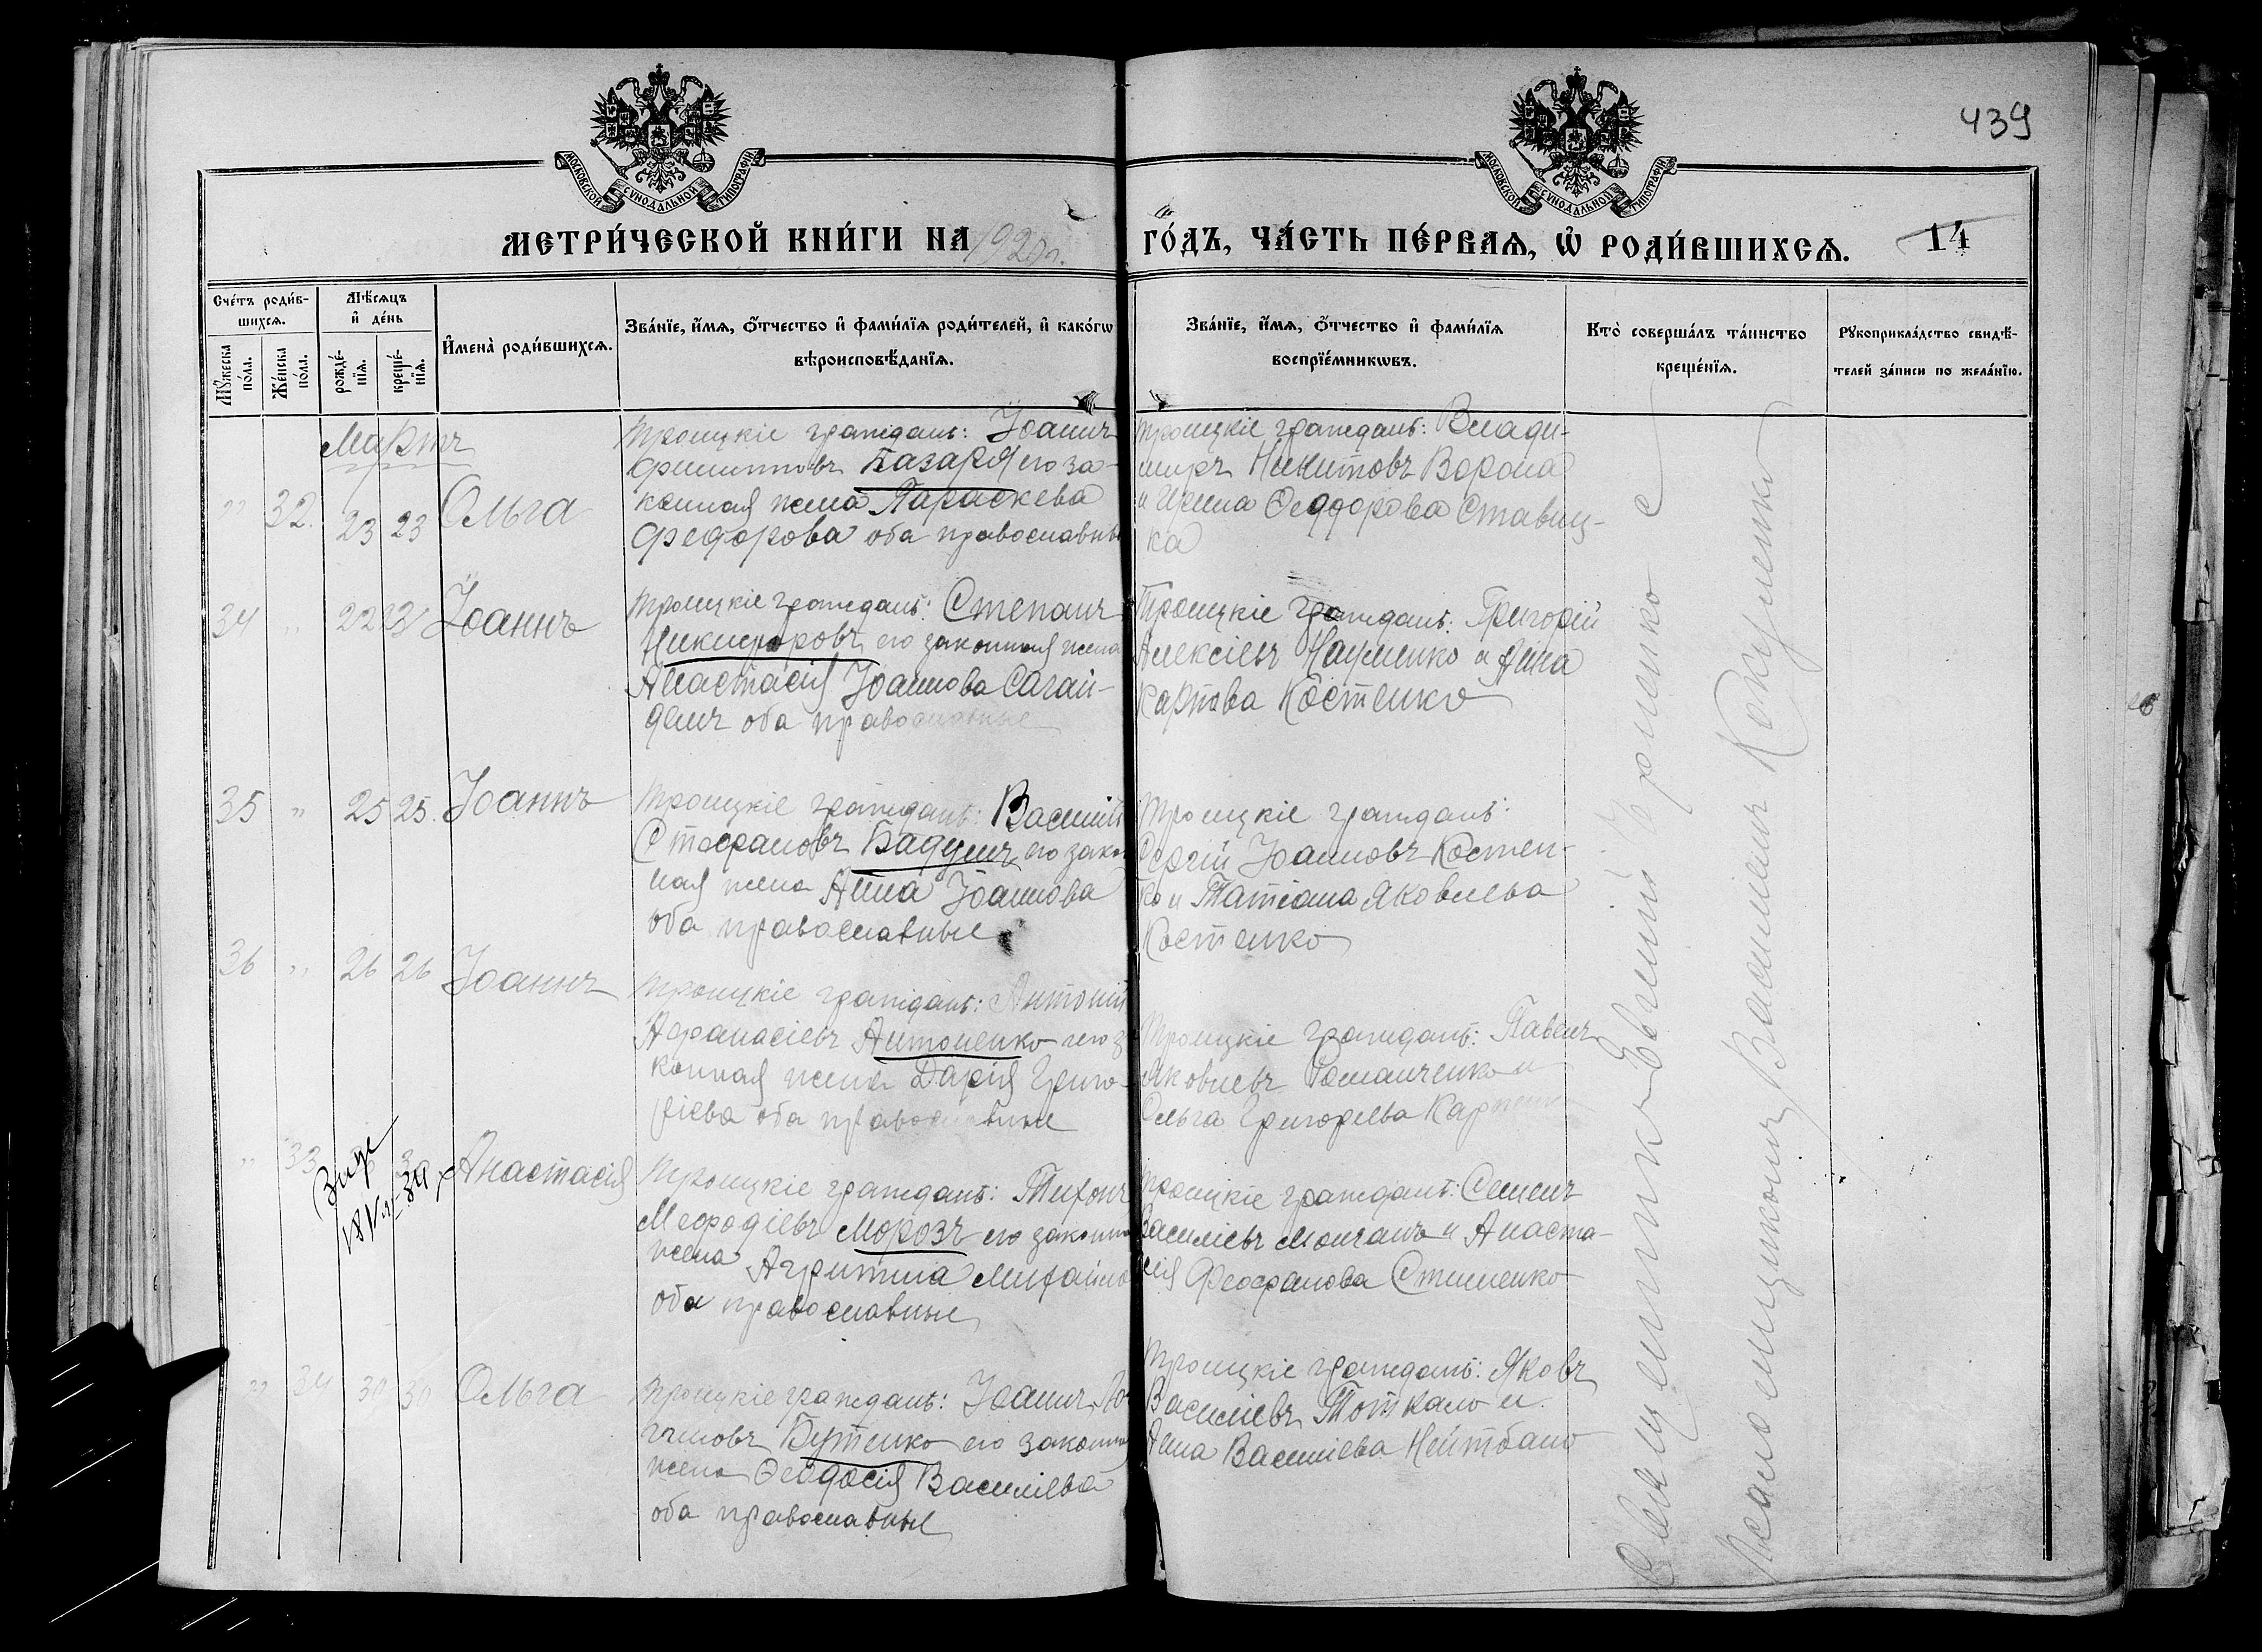 439
МОСКОВСКОЙ СѴНОДАЛЬНОЙ ТИПОГРАФІИ
МОСКОВСКОЙ СѴНОДАЛЬНОЙ ТИПОГРАФІИ
МЕТРИ́ЧЕСКОЙ КНИ́ГИ НА 1920 г.
ГО́ДЪ, ЧА́СТЬ ПЕ́РВАѦ, Ѡ҆ РОДИ́ВШИХСѦ.
14
Сче́тъ роди́в-
шихсѧ.
Мꙋ́жеска по́ла.
Же́нска по́ла.
Мѣ́сѧцъ
и҆ де́нь
рожде́-
нїѧ.
креще́-
нїѧ.
И҆мена̀ роди́вшихсѧ.
Зва́нїе, и҆́мѧ, ѻ҆́тчество и҆ фами́лїѧ роди́телей, и҆ како́гѡ
вѣроисповѣ́данїѧ.
Зва́нїе, и҆́мѧ, ѻ҆́тчество и҆ фами́лїѧ
воспрїе́мникѡвъ.
Кто̀ соверша́лъ та́инство
креще́нїѧ.
Рꙋкоприкла́дство свидѣ́-
телей за́писи по жела́нїю.
Мартъ
32. 23 23 Ольга
Троицкіе граждане: Іоаннъ
Филипповъ Базаря его за-
конная жена Параскева
Федорова оба православны
Троицкіе граждане: Влади-
миръ Никитовъ Ворона
и Ирина Феодорова Ставиц-
ка
34 " 22 23 Іоаннъ
Троицкіе граждане: Степанъ
Никифоровъ, его законная жена
Анастасія Іоаннова Сагай-
дакъ оба православные
Троицкіе граждане: Григорій
Алексіевъ Науменко и Анна
Карпова Костенко
35 " 25 25. Іоаннъ
Троицкіе граждане: Василій
Стефановъ его закон
ная жена Анна Іоаннова
оба православные
Троицкіе граждане:
Сергій Іоанновъ Костен-
ко и Татіана Яковлева
Костенко
36 " 26 26 Іоаннъ
Троицкіе граждане: Антоній
Афанасіевъ Антоненко его за
конная жена Дарія Григо-
ріева оба православные
Троицкіе граждане: Павелъ
Яковлевъ Романченко и
Ольга Григорьева
" 33 Анастасія
Троицкіе граждане: Тихонъ
Мефодіевъ Морозъ его законна
жена Агрипина Михайло
оба православные
Троицкіе граждане: Семенъ
Василіевъ Молчанъ и Анаста-
сія Феофанова
" 34 30 30 Ольга
Троицкіе граждане: Іоаннъ Ло
гиновъ Бутенко его законна
жена Феодосія Василіева
оба православные
Троицкіе граждане: Яковъ
Василіевъ Тоткало и
Анна Василіева
Священникъ Евгеній
Псаломщикъ Василій